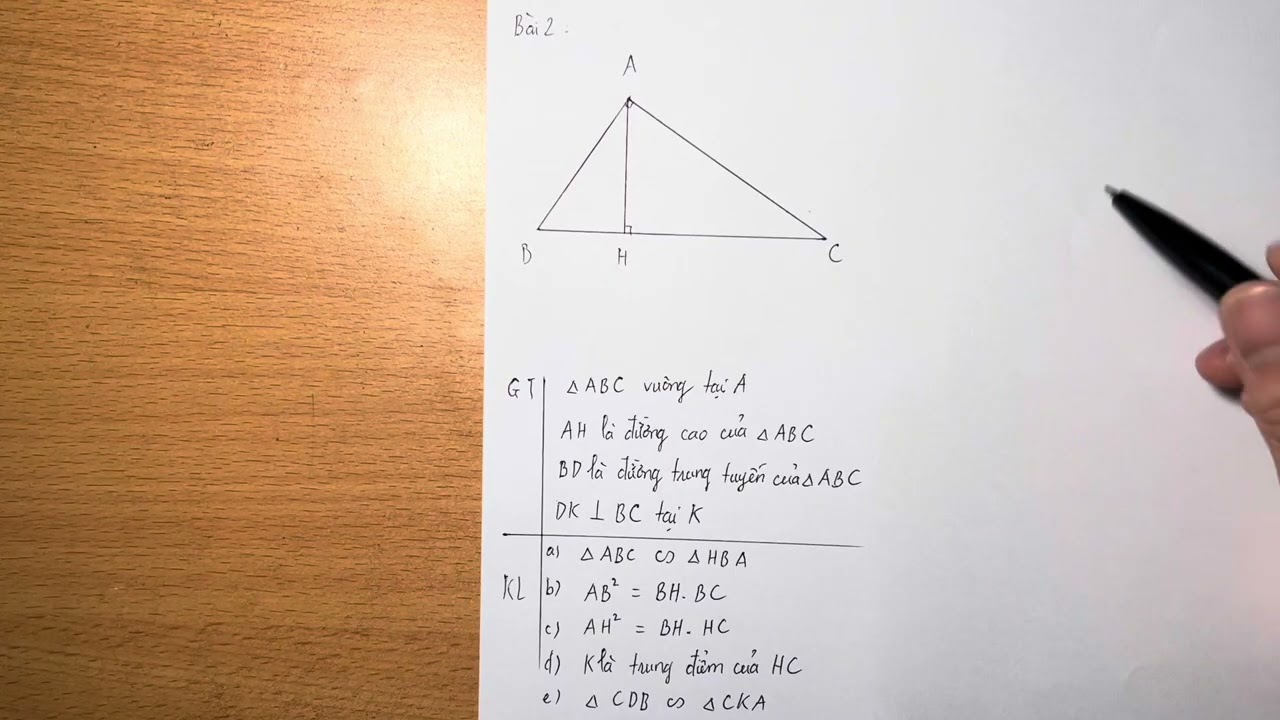 Bài 2 :
A
B
H
C
GT
△ABC vuông tại A
AH là đường cao của △ABC
BD là đường trung tuyến của △ABC
DK ⊥ BC tại K
KL
a) △ABC ∽ △HBA
b) AB² = BH. BC
c) AH² = BH. HC
d) K là trung điểm của HC
e) △CDB ∽ △CKA